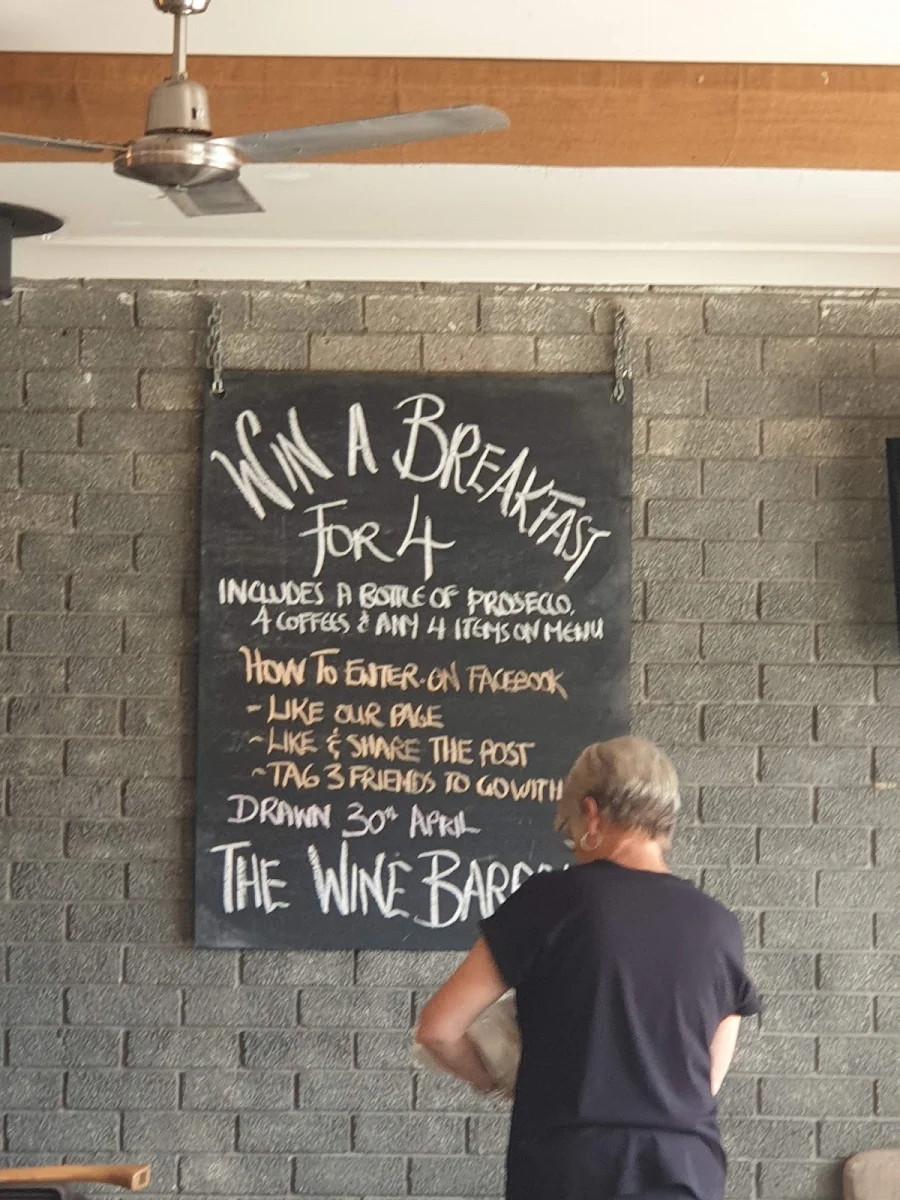 WIN A BREAKFAST
FOR 4
INCLUDES A BOTTLE OF PROSECCO,
4 COFFEES & ANY 4 ITEMS ON MENU
HOW TO ENTER·ON FACEBOOK
- LIKE OUR PAGE
- LIKE & SHARE THE POST
- TAG 3 FRIENDS TO GO WITH
DRAWN 30TH APRIL
THE WINE